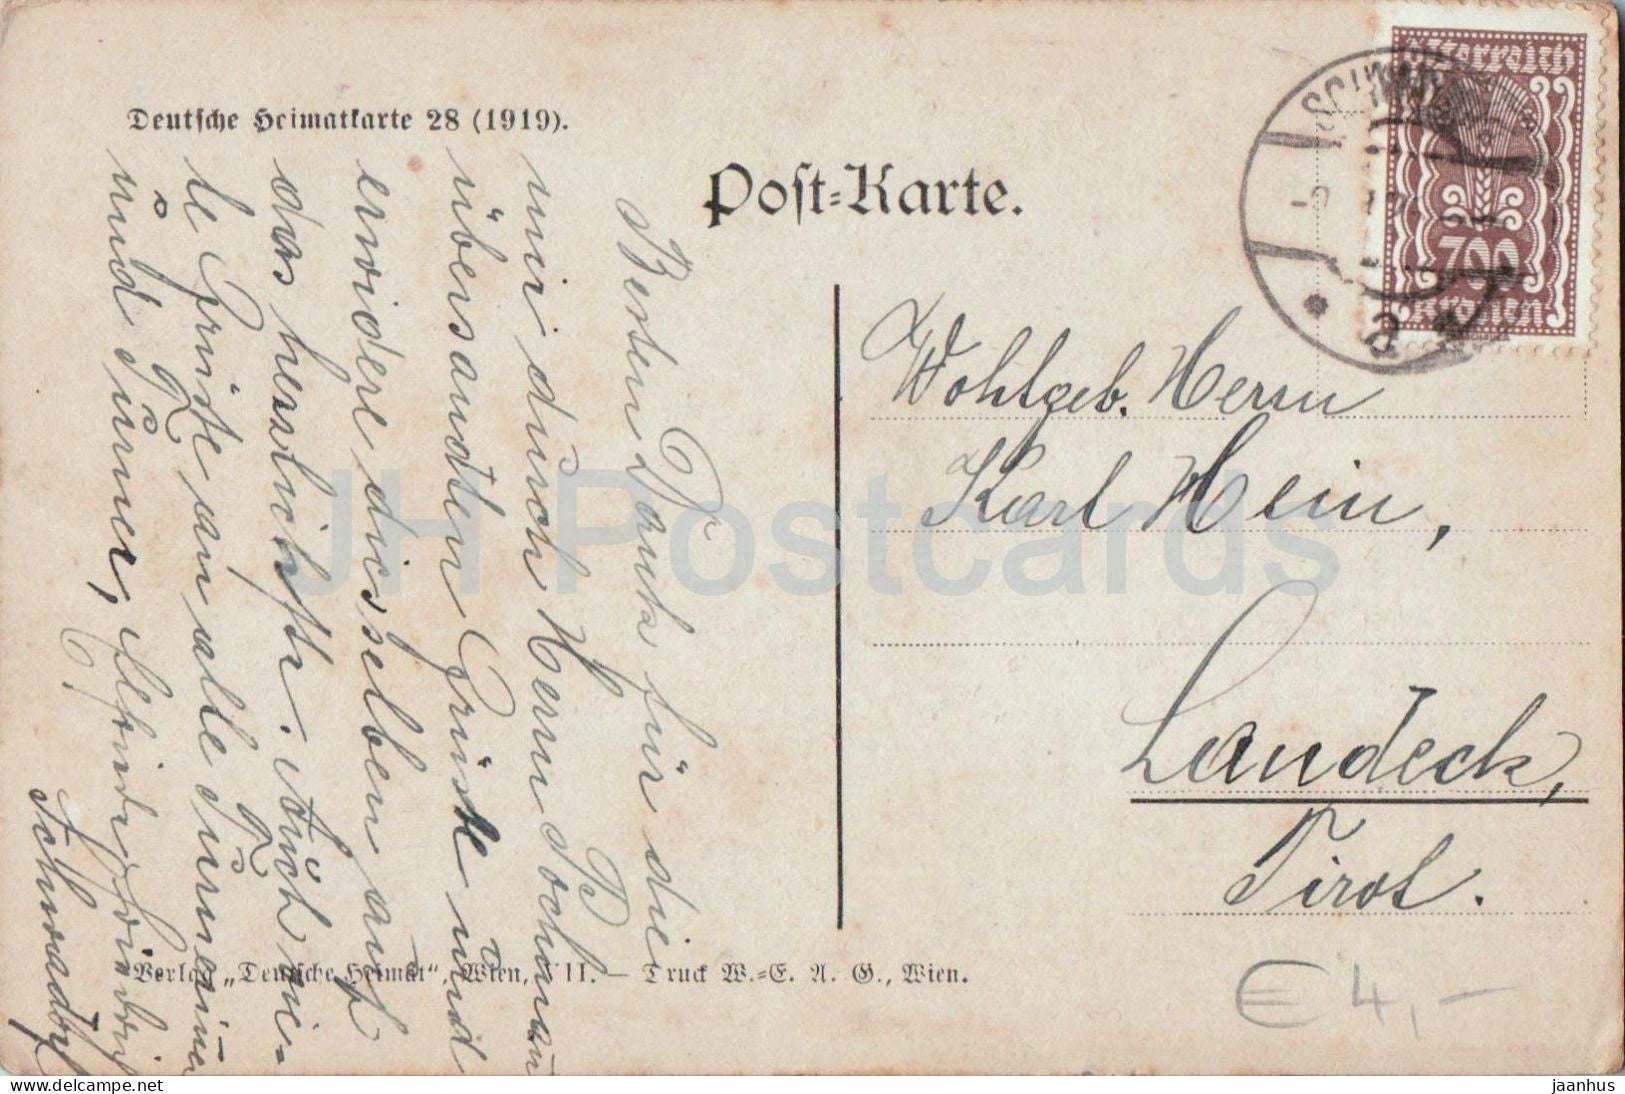 Deutsche Heimatkarte 28 (1919).
Post-Karte.
Österreich
700
Kronen
Besten Dank für die
mir durch Herrn
übersandten Grüße und
erwidere dieselben auf
das herzlichste. Auch vie-
le Grüße an alle Turner
und Turner,
Wohlgeb. Herrn
Karl Hein,
Landeck,
Tirol.
Verlag „Deutsche Heimat“, Wien, VII. — Druck W.-E. A. G., Wien.
€ 4,-
JH Postcards
www.delcampe.net
jaanhus